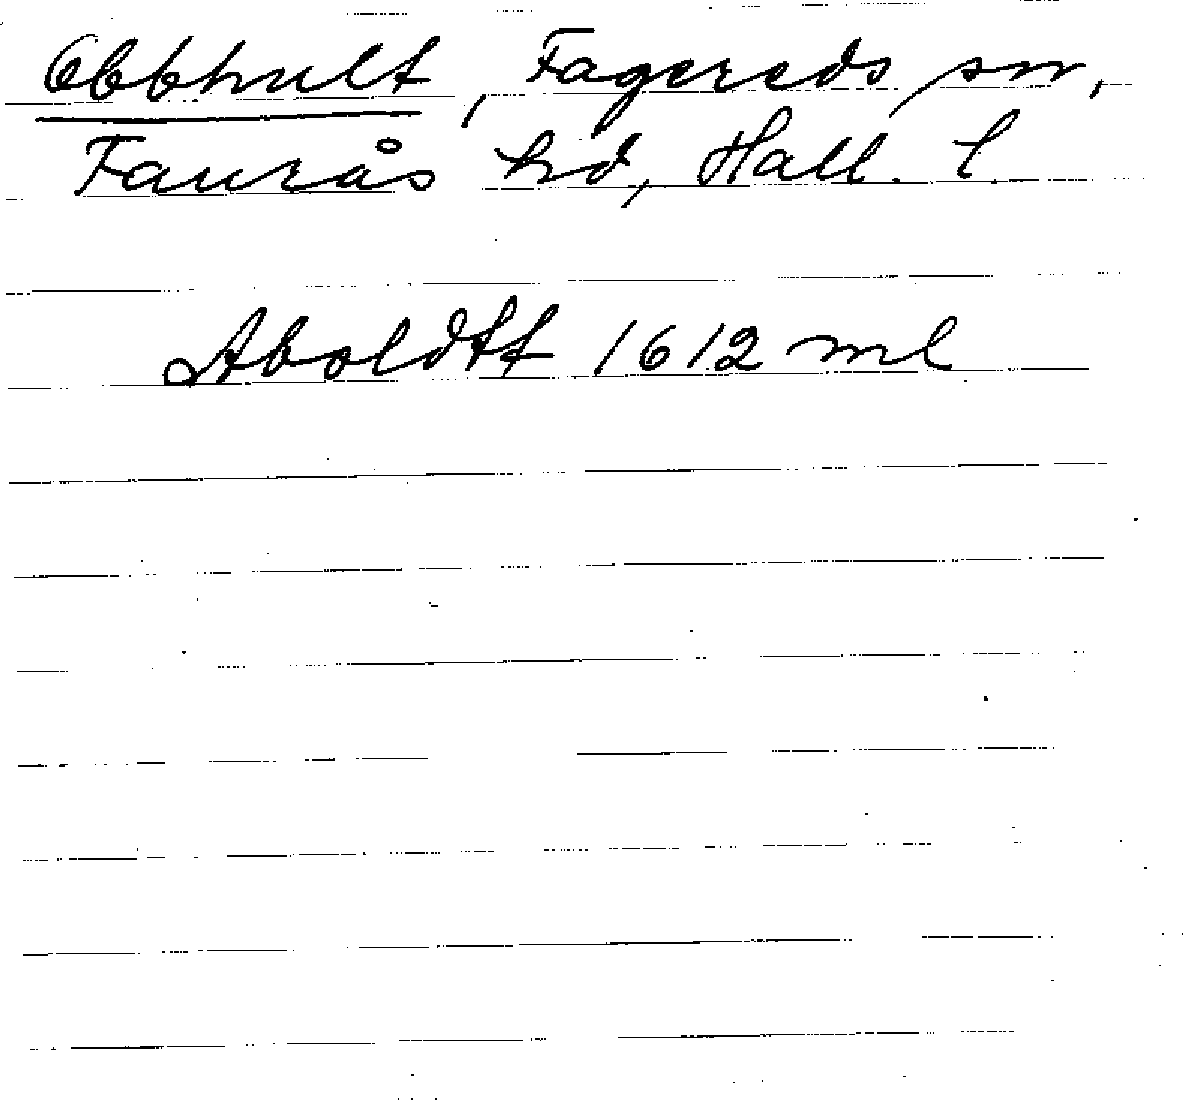 Obbhult, Fagereds sn,
Faurås hd, Hall. l
Aboldtt 1612 ml